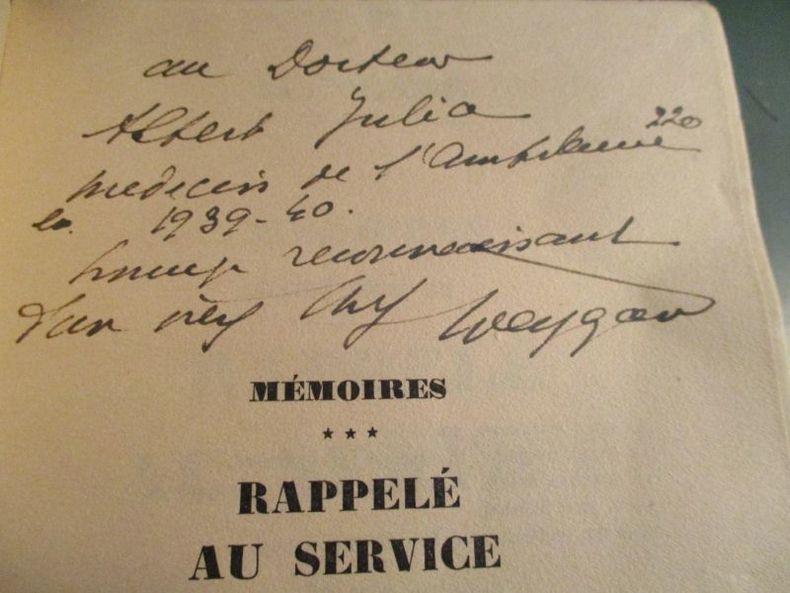 au Docteur
Albert Julia
médecin de l'Ambulance 220
en 1939-40.
hommage reconnaissant
d'un vieux Chef Weygand
MÉMOIRES
★ ★ ★
RAPPELÉ
AU SERVICE